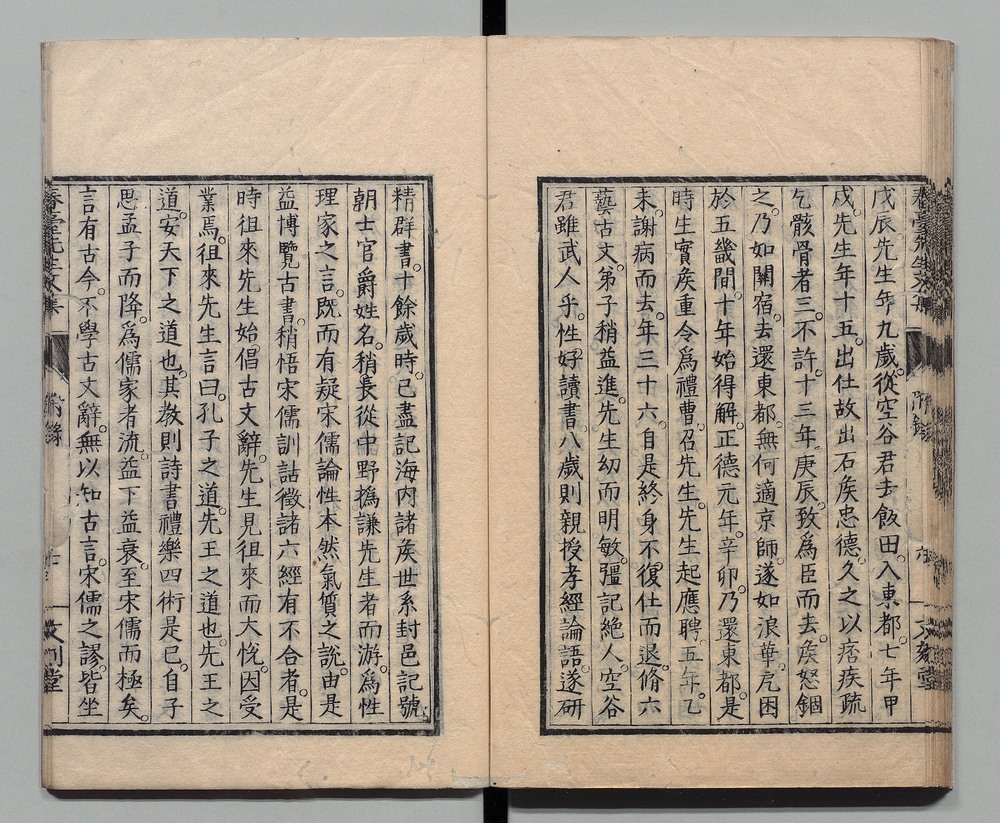 戊辰先生年九歲。從空谷君去飯田。入東都。七年甲
戌。先生年十五。出仕故出石矦忠德。久之以痞疾疏
乞骸骨者三。不許。十三年。庚辰。致爲臣而去。矦怒錮
之。乃如關宿。去還東都。無何適京師。遂如浪華。凥困
於五畿間。十年始得解。正德元年。辛卯。乃還東都。是
時生實矦重令爲禮曹。召先生。先生起應聘。五年。乙
未。謝病而去。年三十六。自是終身不復仕而退。脩六
藝古文。弟子稍益進。先生幼而明敏。彊記絶人。空谷
君雖武人乎。性好讀書。八歲則親授孝經論語。遂研
精群書。十餘歲時。已盡記海内諸矦世系封邑記號
朝士官爵姓名。稍長從中野撝謙先生者而游。爲性
理家之言。既而有疑宋儒論性本然氣質之說。由是
益博覽古書。稍悟宋儒訓詁徵諸六經有不合者。是
時徂來先生始倡古文辭。先生見徂來而大悅。因受
業焉。徂來先生言曰。孔子之道。先王之道也。先王之
道。安天下之道也。其教則詩書禮樂四術是已。自子
思孟子而降。爲儒家者流。益下益衰。至宋儒而極矣。
言有古今。不學古文辭。無以知古言。宋儒之謬。皆坐
春臺先生文集
附錄